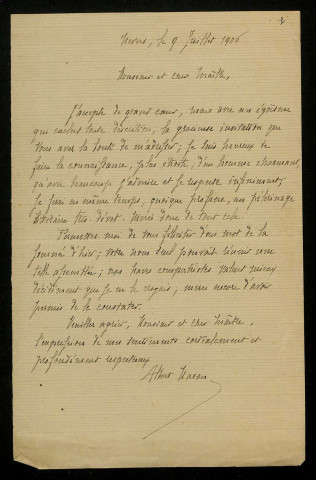 Nevers, le 9 Juillet 1906
Monsieur et cher Maître,
J'accepte de grand cœur, mais avec un égoïsme
qui exclut toute discrétion, la gracieuse invitation que
vous avez la bonté de m'adresser ; je suis heureux de
faire la connaissance, plus étroite, d'un homme charmant,
qu'avec beaucoup j'admire et je respecte infiniment,
je ferai en même temps, quoique profane, un pèlerinage
littéraire très dévot. Merci donc de tout cela.
Permettez moi de vous féliciter d'un mot de la
journée d'hier ; votre nom seul pouvait réunir une
telle assemblée ; nos braves compatriotes valent mieux
décidément que je ne le croyais ; merci encore d'avoir
permis de le constater.
Veuillez agréer, Monsieur et cher Maître,
l'expression de mes sentiments cordialement et
profondément respectueux
Albert